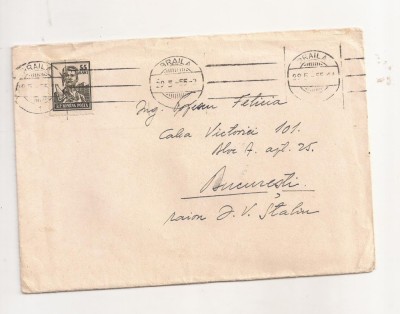 BRAILA
BRAILA
BRAILA
55
POSTA
Ing. Popescu Felicia
Calea Victoriei 101.
Bloc A. apt. 25.
București
raion J. V. Stalin